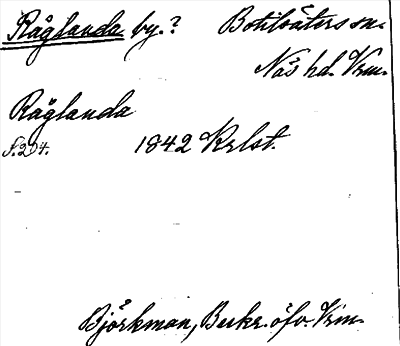 Råglanda by.? Botilsäters sn.
Näs hd. Vrm.
Råglanda
s. 204. 1842 Krlst.
Björkman, Beskr. öfv. Vrm.